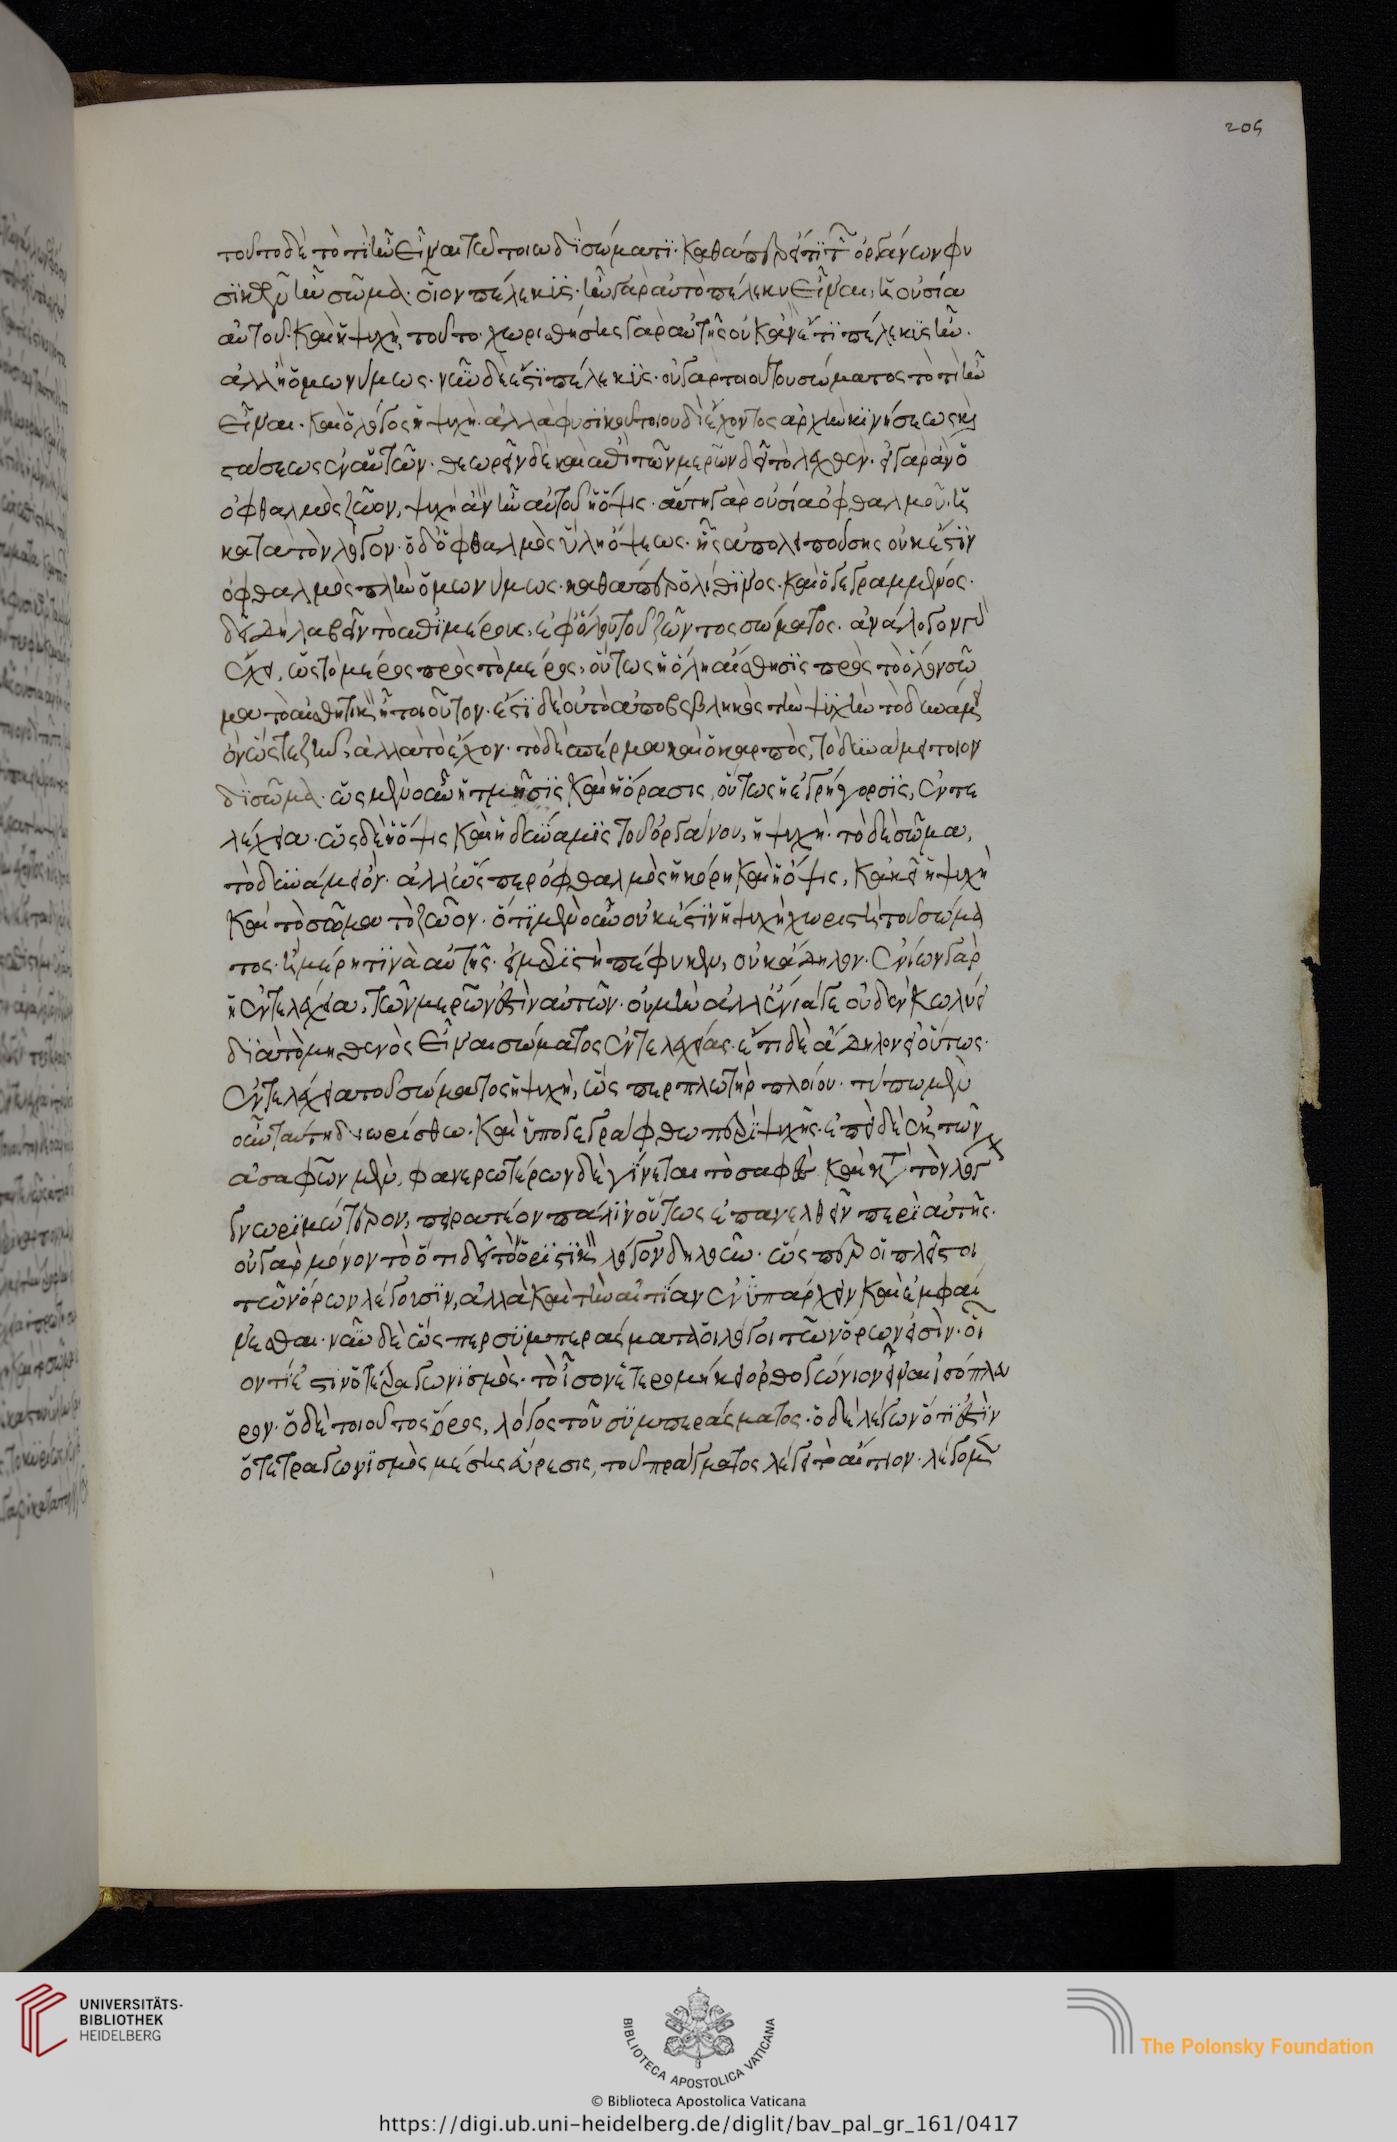 τοῦτο δὲ τὸ τί ἦν εἶναι τῷ τοιῳδὶ σώματι· καθάπερ εἴ τι τῶν ὀργάνων φυ
σικὸν ἦν σῶμα· οἷον πέλεκυς· ἦν γὰρ αὐτὸ πέλεκυ εἶναι, ἡ οὐσία
αὐτοῦ· καὶ ἡ ψυχὴ τοῦτο· χωρισθείσης γὰρ αὐτῆς οὐκ ἂν ἔτι πέλεκυς ἦν·
ἀλλ' ἢ ὁμωνύμως· νῦν δὲ ἔστι πέλεκυς· οὐ γὰρ τοιούτου σώματος τὸ τί ἦν
εἶναι· καὶ ὁ λόγος ἡ ψυχή· ἀλλὰ φυσικοῦ τοιουδὶ ἔχοντος ἀρχὴν κινήσεως καὶ
στάσεως ἐν αὑτῶν· θεωρεῖν δὲ καὶ ἐπὶ τῶν μερῶν δεῖ τὸ λεχθέν· εἰ γὰρ ἂν ὁ
ὀφθαλμὸς ζῶον, ψυχὴ ἂν ἦν αὐτοῦ ἡ ὄψις· αὕτη γὰρ οὐσία ὀφθαλμοῦ· ἡ
κατὰ τὸν λόγον· ὁ δ' ὀφθαλμὸς ὕλη ὄψεως· ἧς ἀπολειπούσης οὐκ ἔστιν
ὀφθαλμὸς πλὴν ὁμωνύμως· καθάπερ ὁ λίθινος· καὶ ὁ γεγραμμένος·
δεῖ δὴ λαβεῖν τὸ ἐπὶ μέρους, ἐφ' ὅλου τοῦ ζῶντος σώματος· ἀνάλογον γὰρ
ἔχει, ὡς τὸ μέρος πρὸς τὸ μέρος, οὕτως ἡ ὅλη αἴσθησις πρὸς τὸ ὅλον σῶ
μα τὸ αἰσθητικὸν ᾗ τοιοῦτον· ἔστι δὲ οὐ τὸ ἀποβεβληκὸς τὴν ψυχὴν τὸ δυνάμει
ὂν ὥστε ζῆν, ἀλλὰ τὸ ἔχον· τὸ δὲ σπέρμα καὶ ὁ καρπὸς, τὸ δυνάμει τοιον
δὶ σῶμα· ὡς μὲν οὖν ἡ τμῆσις καὶ ἡ ὅρασις, οὕτως ἡ ἐγρήγορσις, ἐντε
λέχεια· ὡς δὲ ἡ ὄψις καὶ ἡ δύναμις τοῦ ὀργάνου, ἡ ψυχή· τὸ δὲ σῶμα,
τὸ δυνάμει ὄν· ἀλλ' ὥσπερ ὀφθαλμὸς ἡ κόρη καὶ ἡ ὄψις, κἀκεῖ ἡ ψυχὴ
καὶ τὸ σῶμα τὸ ζῶον· ὅτι μὲν οὖν οὐκ ἔστιν ἡ ψυχὴ χωριστὴ τοῦ σώμα
τος· ἢ μέρη τινὰ αὐτῆς· εἰ μεριστὴ πέφυκεν, οὐκ ἄδηλον· ἐνίων γὰρ
ἡ ἐντελέχεια, τῶν μερῶν ἐστὶν αὐτῶν· οὐ μὴν ἀλλ' ἔνιά γε οὐδὲν κωλύει
διὰ τὸ μηθενὸς εἶναι σώματος ἐντελεχείας· ἔτι δὲ ἄδηλον εἰ οὕτως·
ἐντελέχεια τοῦ σώματος ἡ ψυχὴ, ὥσπερ πλωτὴρ πλοίου· τύπῳ μὲν
οὖν ταύτῃ διωρίσθω· καὶ ὑπογεγράφθω περὶ ψυχῆς· ἐπεὶ δὲ ἐκ τῶν
ἀσαφῶν μὲν, φανερωτέρων δὲ γίνεται τὸ σαφὲς καὶ κατὰ τὸν λόγον
γνωριμώτερον, πειρατέον πάλιν οὕτως ἐπανελθεῖν περὶ αὐτῆς·
οὐ γὰρ μόνον τὸ ὅτι δεῖ τὸν ὁριστικὸν λόγον δηλοῦν· ὥσπερ οἱ πλεῖστοι
τῶν ὅρων λέγουσιν, ἀλλὰ καὶ τὴν αἰτίαν ἐνυπάρχειν καὶ ἐμφαί
νεσθαι· νῦν δὲ ὥσπερ συμπεράσματα οἱ λόγοι τῶν ὅρων εἰσὶν· οἷ
ον τί ἐστιν ὁ τετραγωνισμός· τὸ ἴσον ἑτερομήκει ὀρθογώνιον εἶναι ἰσόπλευ
ρον· ὁ δὲ τοιοῦτος ὅρος, λόγος τοῦ συμπεράσματος· ὁ δὲ λέγων ὅτι ἐστὶν
ὁ τετραγωνισμὸς μέσης εὕρεσις, τοῦ πράγματος λέγει τὸ αἴτιον· λέγομεν
205
UNIVERSITÄTS-
BIBLIOTHEK
HEIDELBERG
BIBLIOTECA APOSTOLICA VATICANA
The Polonsky Foundation
© Biblioteca Apostolica Vaticana
https://digi.ub.uni-heidelberg.de/diglit/bav_pal_gr_161/0417